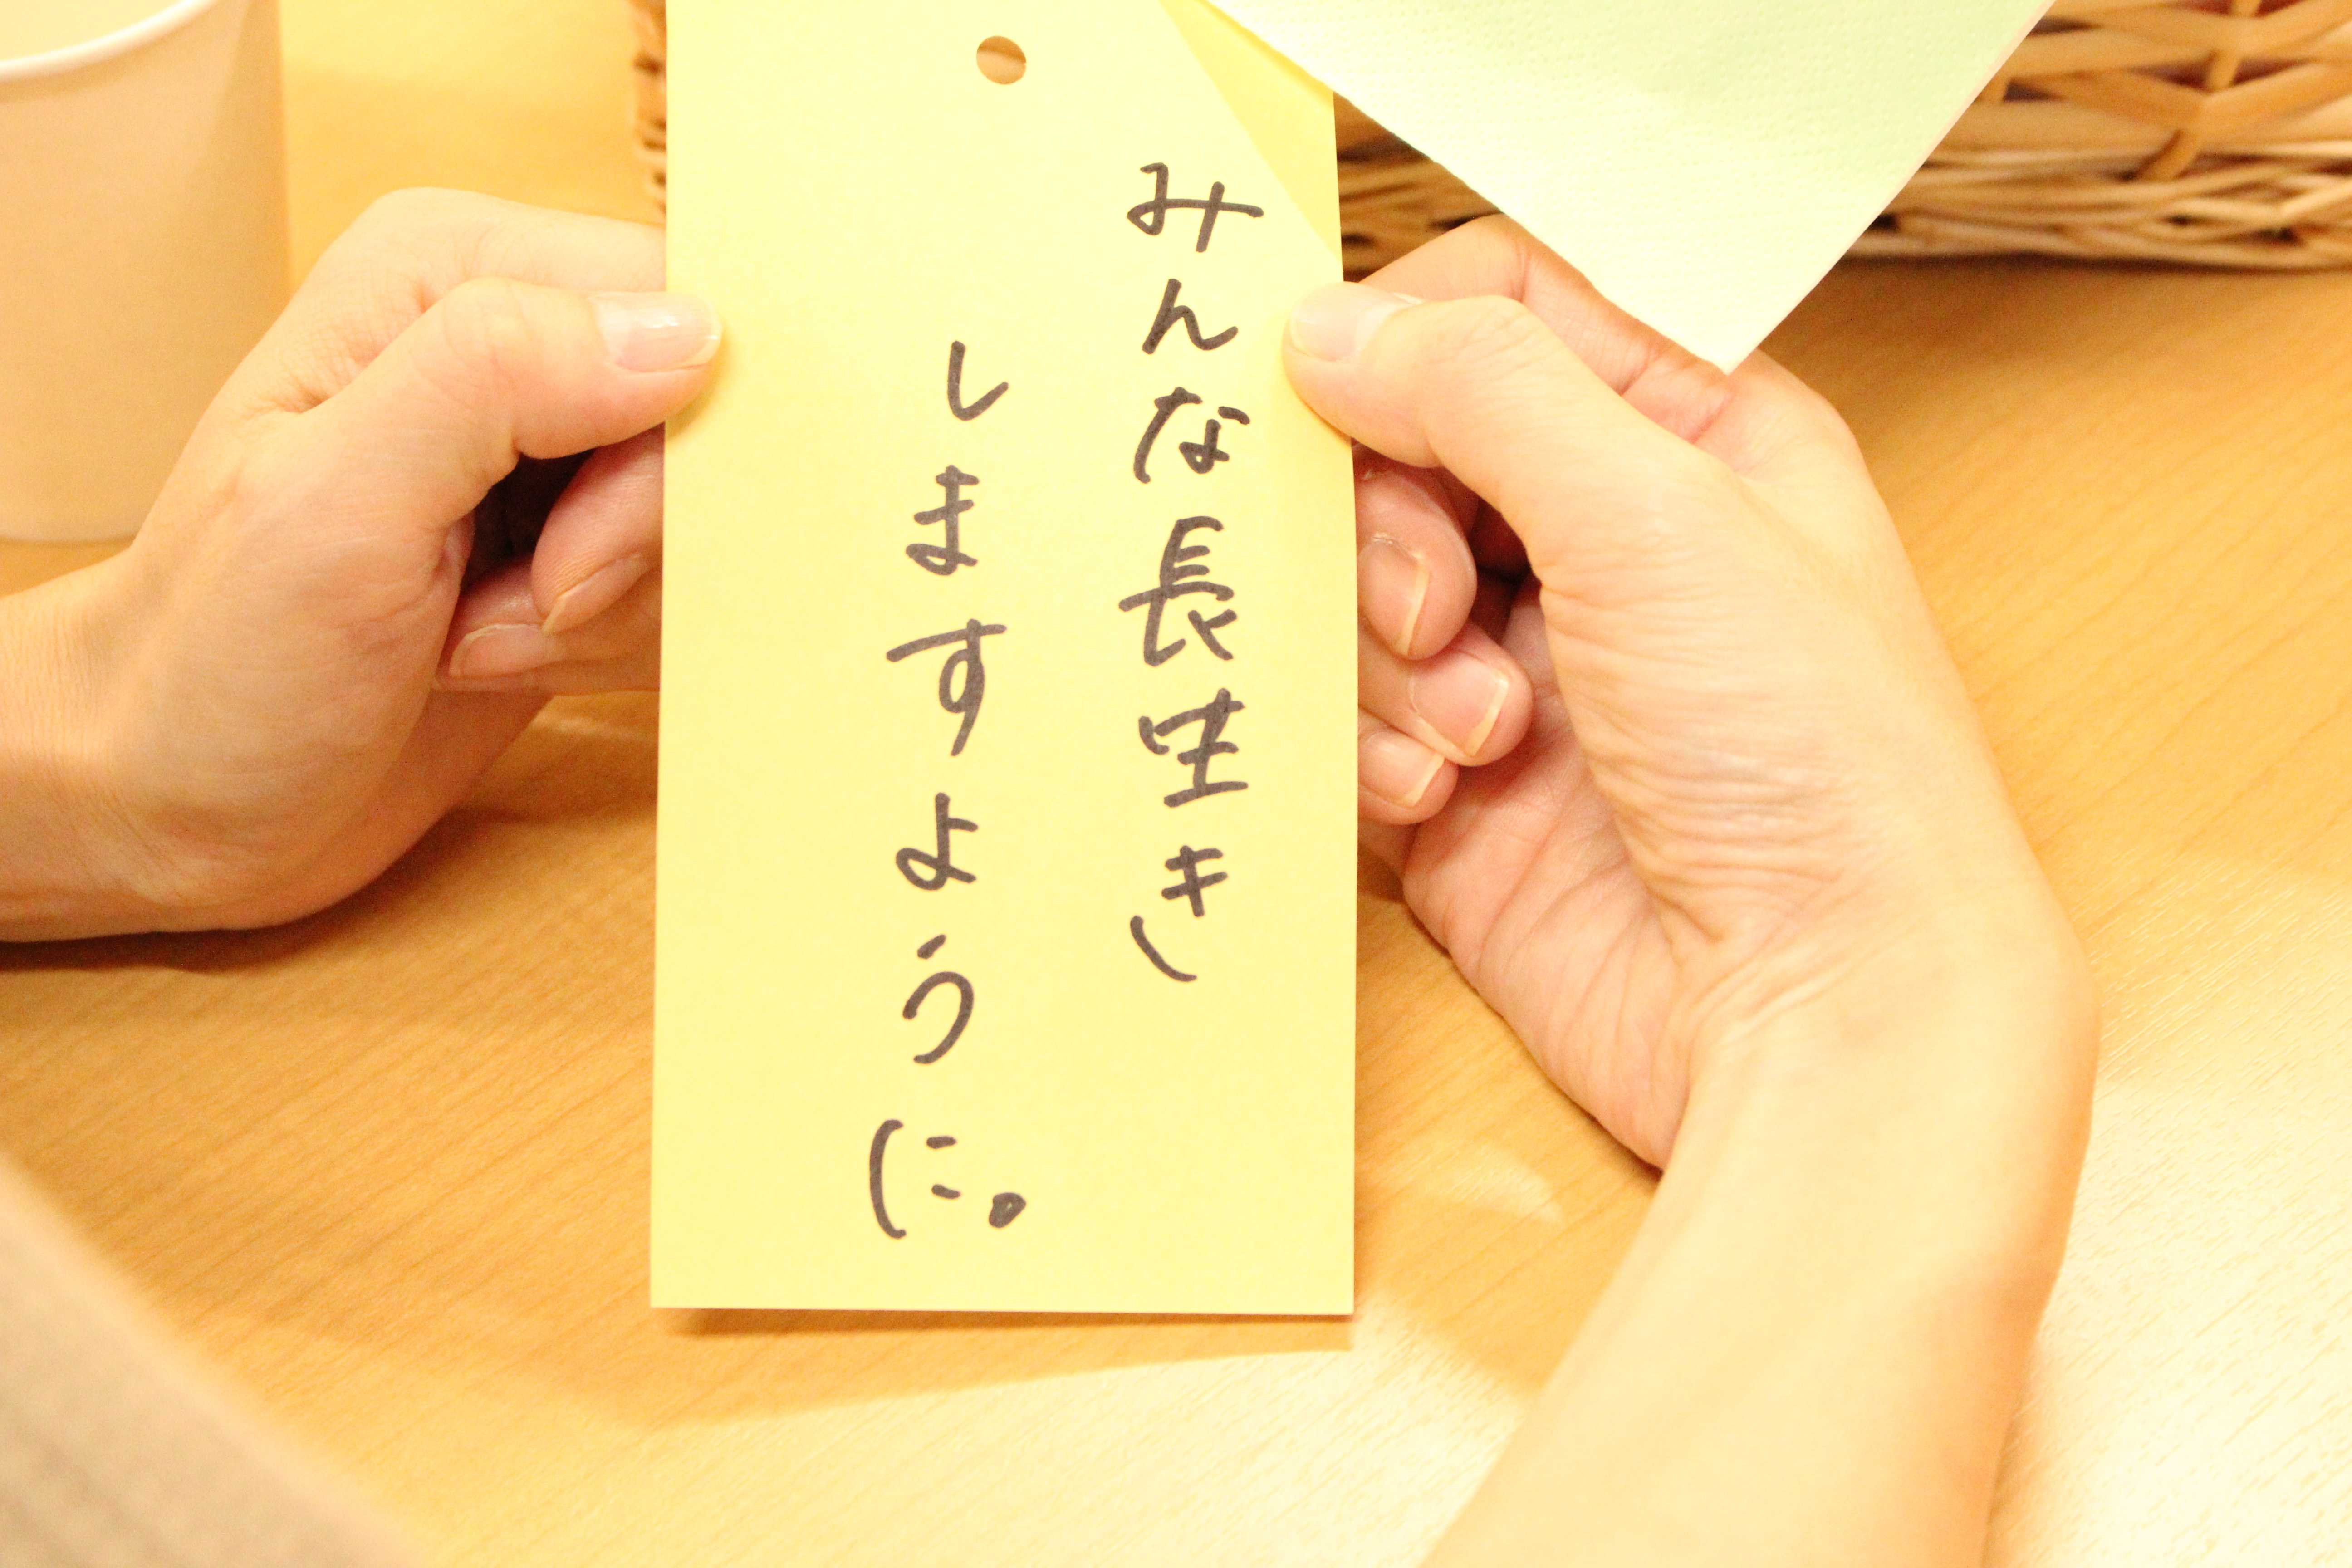 みんな長生き
しますように。